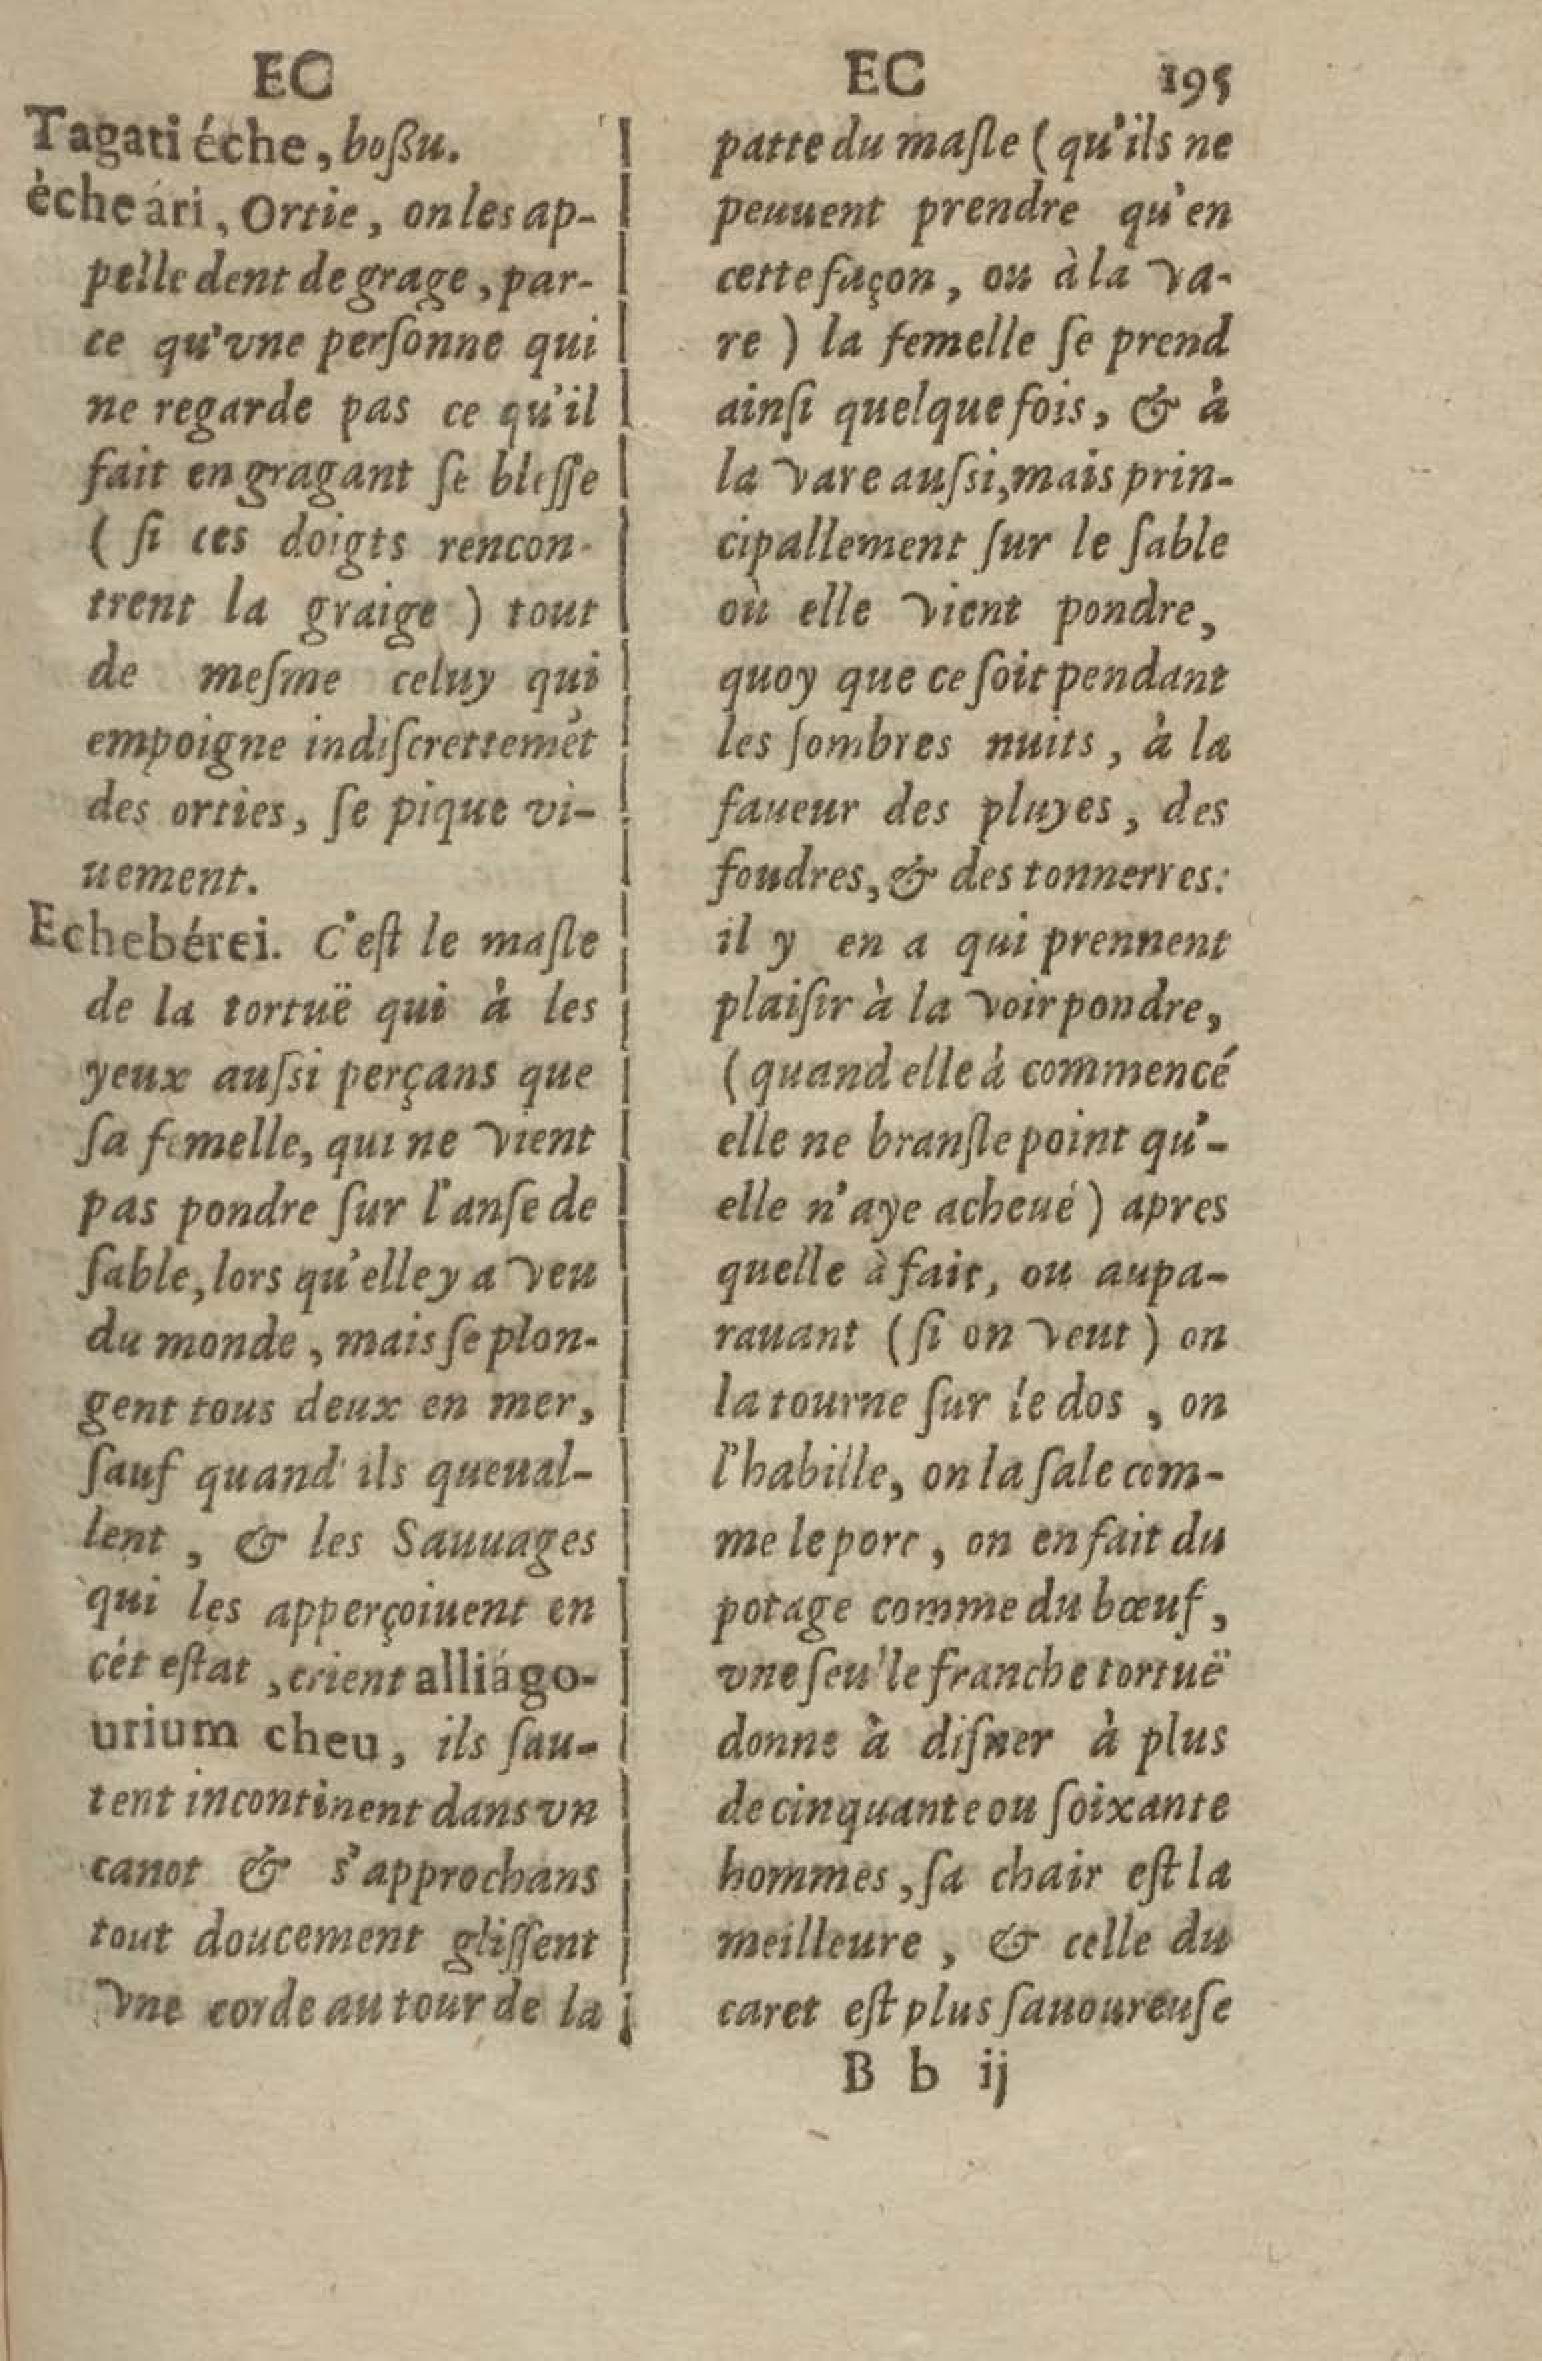 EC
Tagati éche, boßu.
èche ári, Ortie, on les ap-
pelle dent de grage, par-
ce qu'vne perſonne qui
ne regarde pas ce qu'il
fait en gragant ſe bleſſe
( ſi ces doigts rencon-
trent la graige ) tout
de meſme celuy qui
empoigne indiſcrettemẽt
des orties, ſe pique vi-
uement.
Echebérei. C'eſt le maſle
de la tortuë qui à les
yeux auſsi perçans que
ſa femelle, qui ne vient
pas pondre ſur l'anſe de
ſable, lors qu'elle y a veu
du monde, mais ſe plon-
gent tous deux en mer,
ſauf quand ils queual-
lent, & les Sauuages
qui les apperçoiuent en
cét eſtat, crient alliágo-
urium cheu, ils ſau-
tent incontinent dans vn
canot & s'approchans
tout doucement gliſſent
vne corde au tour de la
EC 195
patte du maſle ( qu'ils ne
peuuent prendre qu'en
cette façon, ou à la va-
re ) la femelle ſe prend
ainſi quelque fois, & à
la vare auſsi, mais prin-
cipallement ſur le ſable
où elle vient pondre,
quoy que ce ſoit pendant
les ſombres nuits, à la
faueur des pluyes, des
foudres, & des tonnerres:
il y en a qui prennent
plaiſir à la voir pondre,
( quand elle à commencé
elle ne branſle point qu'-
elle n'aye acheué ) apres
quelle à fait, ou aupa-
rauant ( ſi on veut ) on
la tourne ſur le dos, on
l'habille, on la ſale com-
me le porc, on en fait du
potage comme du bœuf,
vne ſeu'le franche tortuë
donne à diſner à plus
de cinquante ou ſoixante
hommes, ſa chair eſt la
meilleure, & celle du
caret eſt plus ſauoureuſe
B b ij